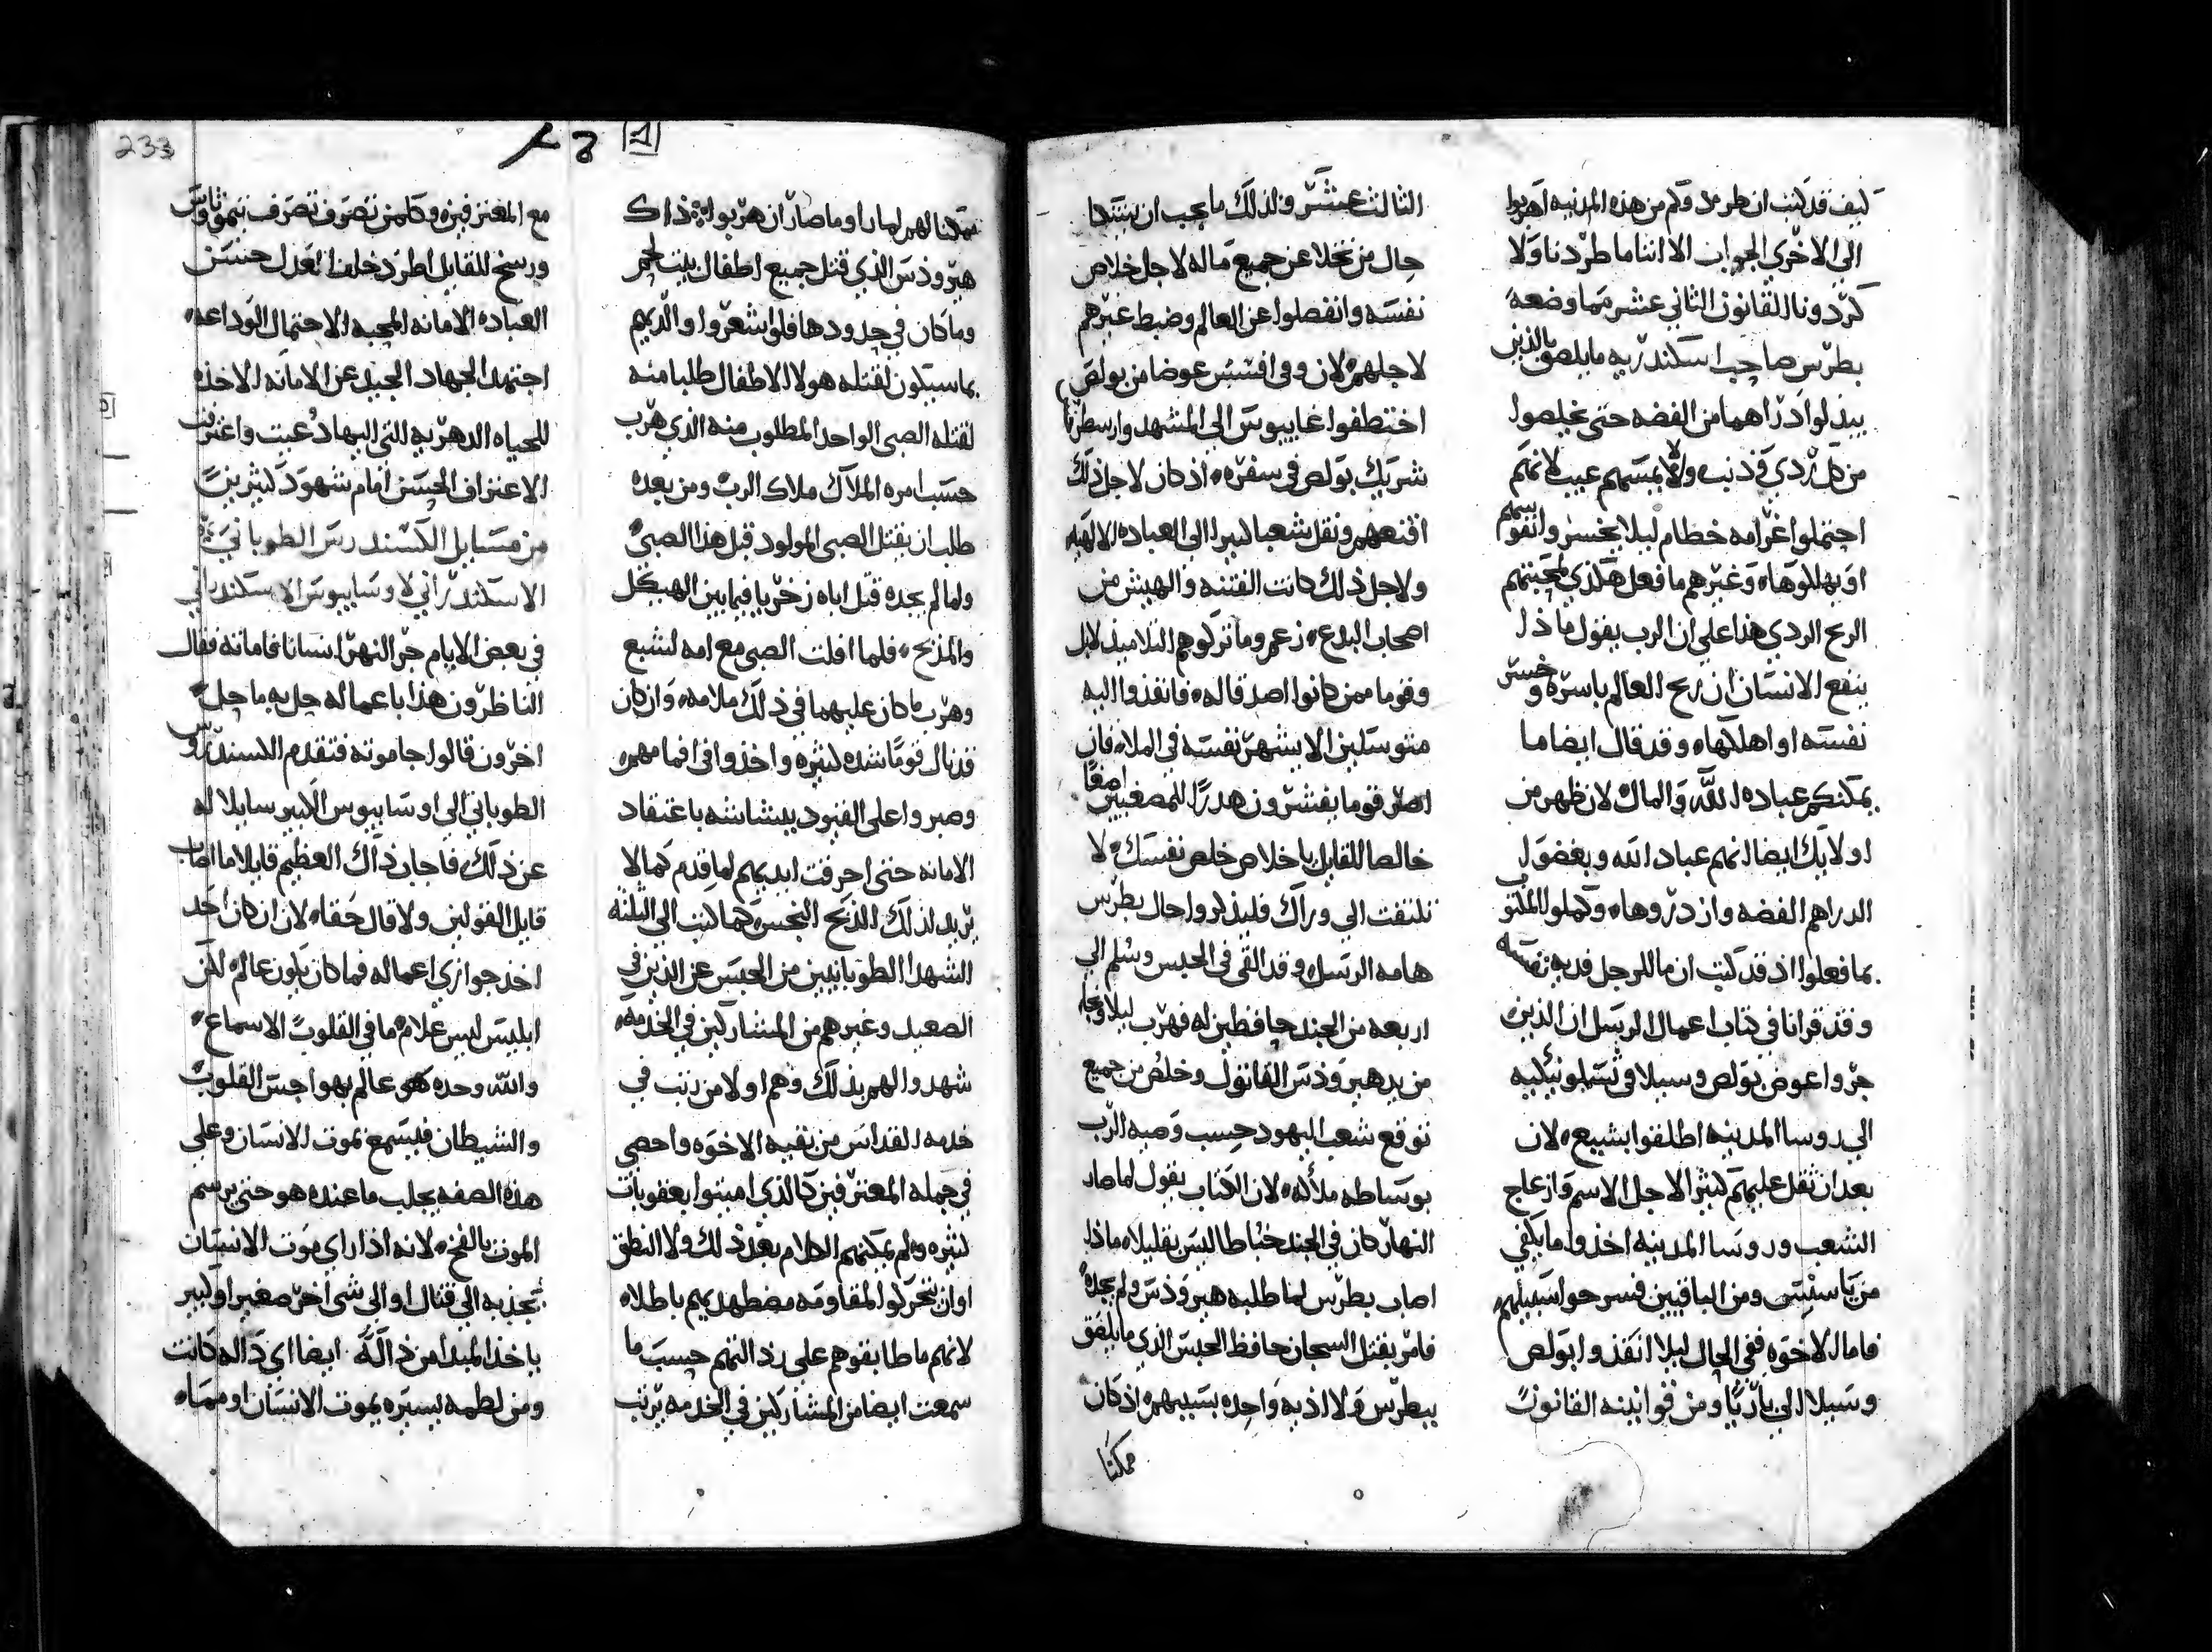 كيف قد كتبت ان طردوكم من هذه المدينه اهربوا
الى الاخري الجواب الا اننا ما طردنا ولا
كردونا القانون الثاني عشر مما وضعه
بطرس صاحب اسكندريه ما يلصق بالذين
بيذلوا دراهما من الفضه حتى يخلصوا
من كل ردي وذنب ولا يمسهم عيب لانهم
احتملوا غرامه حطام ليلا يخسروا نفوسهم
او يهلكوها وغيرهم ما فعل هكذي لمحبتهم
الربح الردي هذا علي ان الرب يقول ماذا
ينفع الانسان ان ربح العالم باسره وخسر
نفسه او اهلكها وقد قال ايضا ما
يمكنكم عباده الله والمال لان ظهر من
اولايك ايضا انهم عباد الله وبغضوا
الدراهم الفضه وازدروها وكملوا المكتوب
بما فعلوا اذ قد كتب ان مال الرجل فديه نفسه
وقد قرانا في كتاب اعمال الرسل ان الذين
جروا عوض بولص وسيلا في تسالونيكيه
الى روسا المدينه اطلقوا بشييع لان
بعد ان ثقل عليهم كثيرا لاجل الاسم وازعاج
الشعب وروسا المدينه اخذوا ما يكفي
من ياسن ومن الباقيين فسرحوا سبيلهم
فاما الاخوه ففي الحال ليلا انفذوا بولص
وسيلا الى باريا ومن قوانينه القانون
الثالث عشر ولذلك ما يجب ان يشكا
حال من تخلا عن جميع ماله لاجل خلاص
نفسه وانفصلوا عن العالم وضبط غيرهم
لاجلهم لان وفي افسس عوضا من بولص
اختطفوا غاييوس الى المشهد وارسطرخا
شريك بولص في سفره اذ كان لاجل ذلك
اقنعهم ونقل شعبا كبيرا الى العباده الالهيه
ولاجل ذلك كانت الفتنه والهيش من
اصحاب البدع زعم وما تركوهم التلاميذ لا بل
وقوما ممن كانوا اصدقا له فانفذوا اليه
متوسلين الا يشهر نفسه في الملا فان
اصر قوما يفشرون هدرا للمصغيين اصغا
خالصا للقايل باخلاص خلص نفسك لا
تلتفت الي وراك فليذكروا حال بطرس
هامه الرسل وقد القى في الحبس وسلم الي
اربعه من الجند حافظين له فهرب ليلا ونجا
من يد هيروذس القاتول وخلص من جميع
توقع شعب اليهود حسب وصيه الرب
بوساطه ملاكه لان الكتاب يقول لما صار
النهار كان في الجند خباطا ليس بقليلا ماذا
اصاب بطرس لما طلبه هيروذس ولم يجده
فامر بقتل السجان حافظ الحبس الذي ما يلصق
ببطرس ولا اذيه واحده بسببهم اذ كان
ممكنا
233
ممكنا لهم لما راوا ما صار ان هربوا ذاك
هيروذس الذي قتل جميع اطفال بيت لحم
وما كان في حدودها فلو اشعروا والديهم
بما سيكون لقتله هولا الاطفال طلبا منه
لقتله الصبي الواحد المطلوب منه الذي هرب
حسب امره الملاك ملاك الرب ومن بعده
طلب ان يقتل الصبي المولود قبل هذا الصبي
ولما لم يجده قتل اباه زخريا فيما بين الهيكل
والمذبح فلما افلت الصبي مع امه لشبع
وهرب ما كان عليهما في ذلك ملامه وان كان
قد نال قوما شده كثيره واخذوا في افمامهم
وصبروا على القيود ببشاشه باعتقاد
الامانه حتى احرقت ايديهم لما قدم كما لا
يريد لذلك الذبح النجس كما كتب الى الثلثه
الشهدا الطوبانيين من الحبس عن الذين في
الصعيد وغيرهم من المشاركين في الخدمه
شهدوا لهم بذلك وهم اولا من رتب في
خدمه القداس من بقيه الاخوه واحصي
في جمله المعترفين كالذي اميتوا بعقوبات
كثيره ولم يمكنهم الكلام بعد ذلك ولا النطق
او ان تحركوا لمقاومه مضطهديهم باطلا
لانهم ما طابقوهم على رذالتهم حسب ما
سمعت ايضا من المشاركين في الخدمه يرتب
مع المعترفين وكلمن تصرف تصرف تيموثاوس
ورسخ للقايل اطرد خلف العدل حسن
العباده الامانه المحبه الاحتمال الوداعه
اجتهد الجهاد الجيد عن الامانه الاخذه
للحياه الدهريه التي اليها دعيت واعترفت
الاعتراف الحسن امام شهود كثيرين
من مسايل الكسندرس الطوباني
الاسكندراني لاوسابيوس الاسكندراني
في بعض الايام جر النهر انسانا فاماته فقال
الناظرون هذا باعماله حل به ما حل
اخرون قالوا جا موته فتقدم الكسندرس
الطوباني الى اوسابيوس الكبير سايلا له
عن ذلك فاجاب ذاك العظيم قايلا ما اصاب
قايل القولين ولا قال حقا لان ان كان احد
اخذ جوازي اعماله فما كان يكون عالم لكن
ابليس ليس علام ما في القلوب الاسماع
والله وحده هو عالم بهواجس القلوب
والشيطان فيسمع بموت الانسان وعلي
هذه الصفه يجلب ما عنده هو حتى يرسم
الموت بالفخ لانه اذا راي موت الانسان
يجذبه الى قتال او الى شي اخر صغيرا وكبير
ياخذ المبدا من ذاله ايضا اي ذاله كانت
ومن لطمه يسيره يموت الانسان او مما